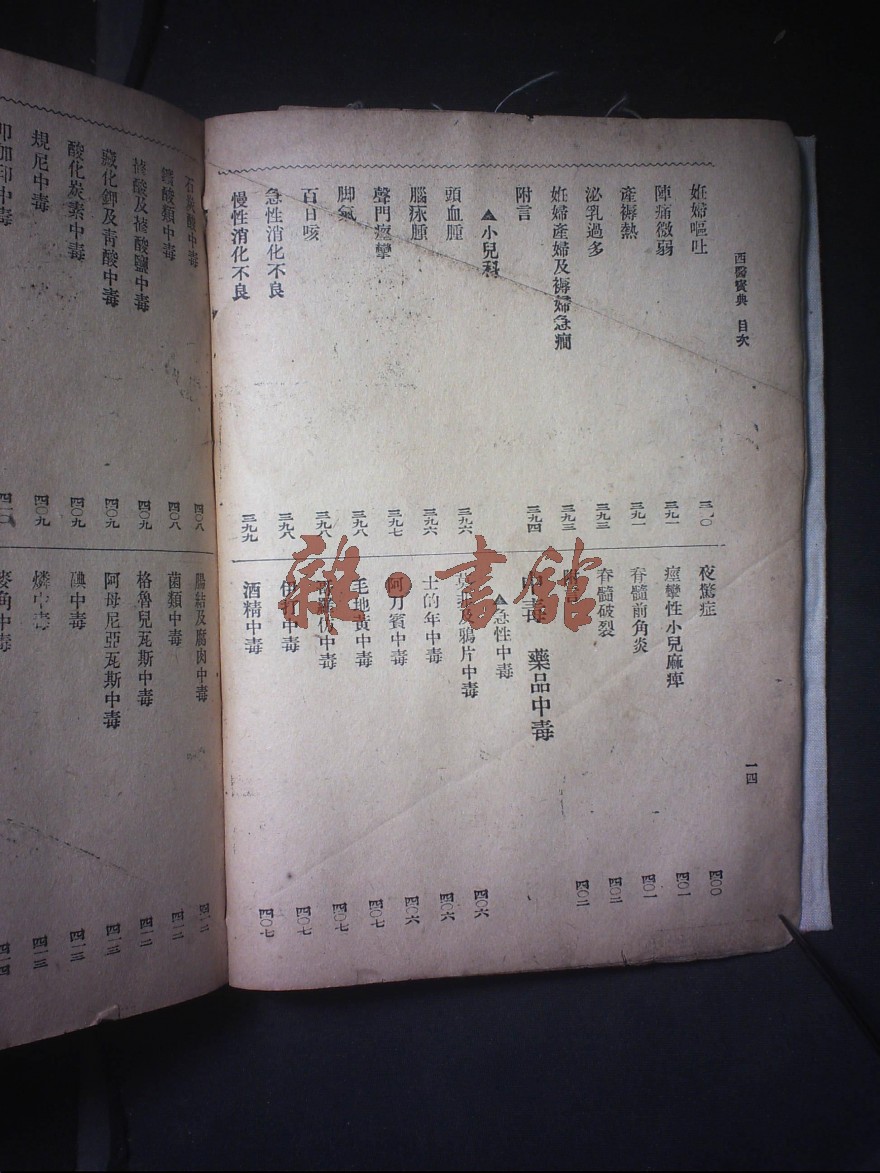 西醫寶典 目次
一四
妊婦嘔吐
陣痛微弱 三九一
產褥熱 三九一
泌乳過多 三九三
妊婦產婦及褥婦急癇 三九三
附言 三九四
▲小兒科
頭血腫 三九六
腦水腫 三九六
聲門痙攣 三九七
脚氣 三九八
百日咳 三九八
急性消化不良 三九八
慢性消化不良 三九九
夜驚症 四〇〇
痙攣性小兒麻痺 四〇一
脊髓前角炎 四〇一
脊髓破裂 四〇二
四〇二
中毒 藥品中毒
▲急性中毒
及鴉片中毒 四〇六
士的年中毒 四〇六
阿刀賓中毒 四〇六
毛地黃中毒 四〇七
中毒 四〇七
伊打中毒 四〇七
酒精中毒 四〇七
石炭酸中毒 四〇八
酸類中毒 四〇八
蓚酸及蓚酸鹽中毒 四〇九
藏化鉀及青酸中毒 四〇九
酸化炭素中毒 四〇九
規尼中毒 四〇九
中毒
腸結及腐肉中毒 四一二
菌類中毒 四一二
格魯兒瓦斯中毒 四一二
阿母尼亞瓦斯中毒 四一三
碘中毒 四一三
燐中毒 四一三
麥角中毒 四一四
雜·書館